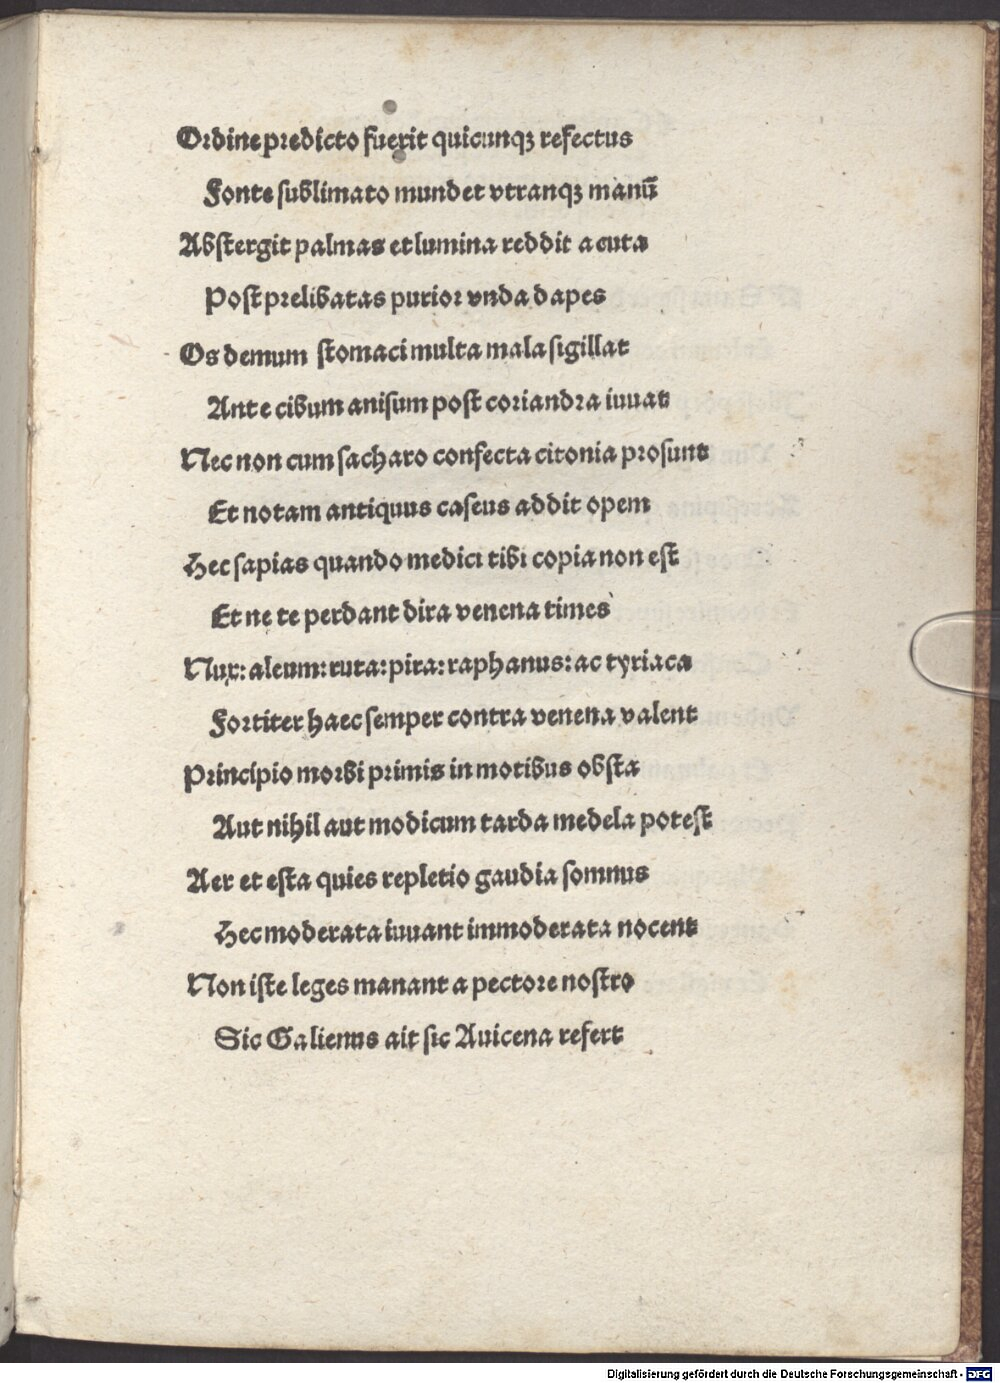 Ordine predicto fuerit quicunqꝫ refectus
Fonte sublimato mundet vtranqꝫ manū
Abstergit palmas et lumina reddit acuta
Post prelibatas purior vnda dapes
Os demum stomaci multa mala sigillat
Ante cibum anisum post coriandra iuuat
Nec non cum sacharo confecta citonia prosunt
Et notam antiquus caseus addit opem
Hec sapias quando medici tibi copia non est
Et ne te perdant dira venena times
Nux: aleum: ruta: pira: raphanus: ac tyriaca
Fortiter haec semper contra venena valent
Principio morbi primis in motibus obsta
Aut nihil aut modicum tarda medela potest
Aer et esta quies repletio gaudia somnus
Hec moderata iuuant immoderata nocent
Non iste leges manant a pectore nostro
Sic Galienus ait sic Auicena refert
Digitalisierung gefördert durch die Deutsche Forschungsgemeinschaft - DFG